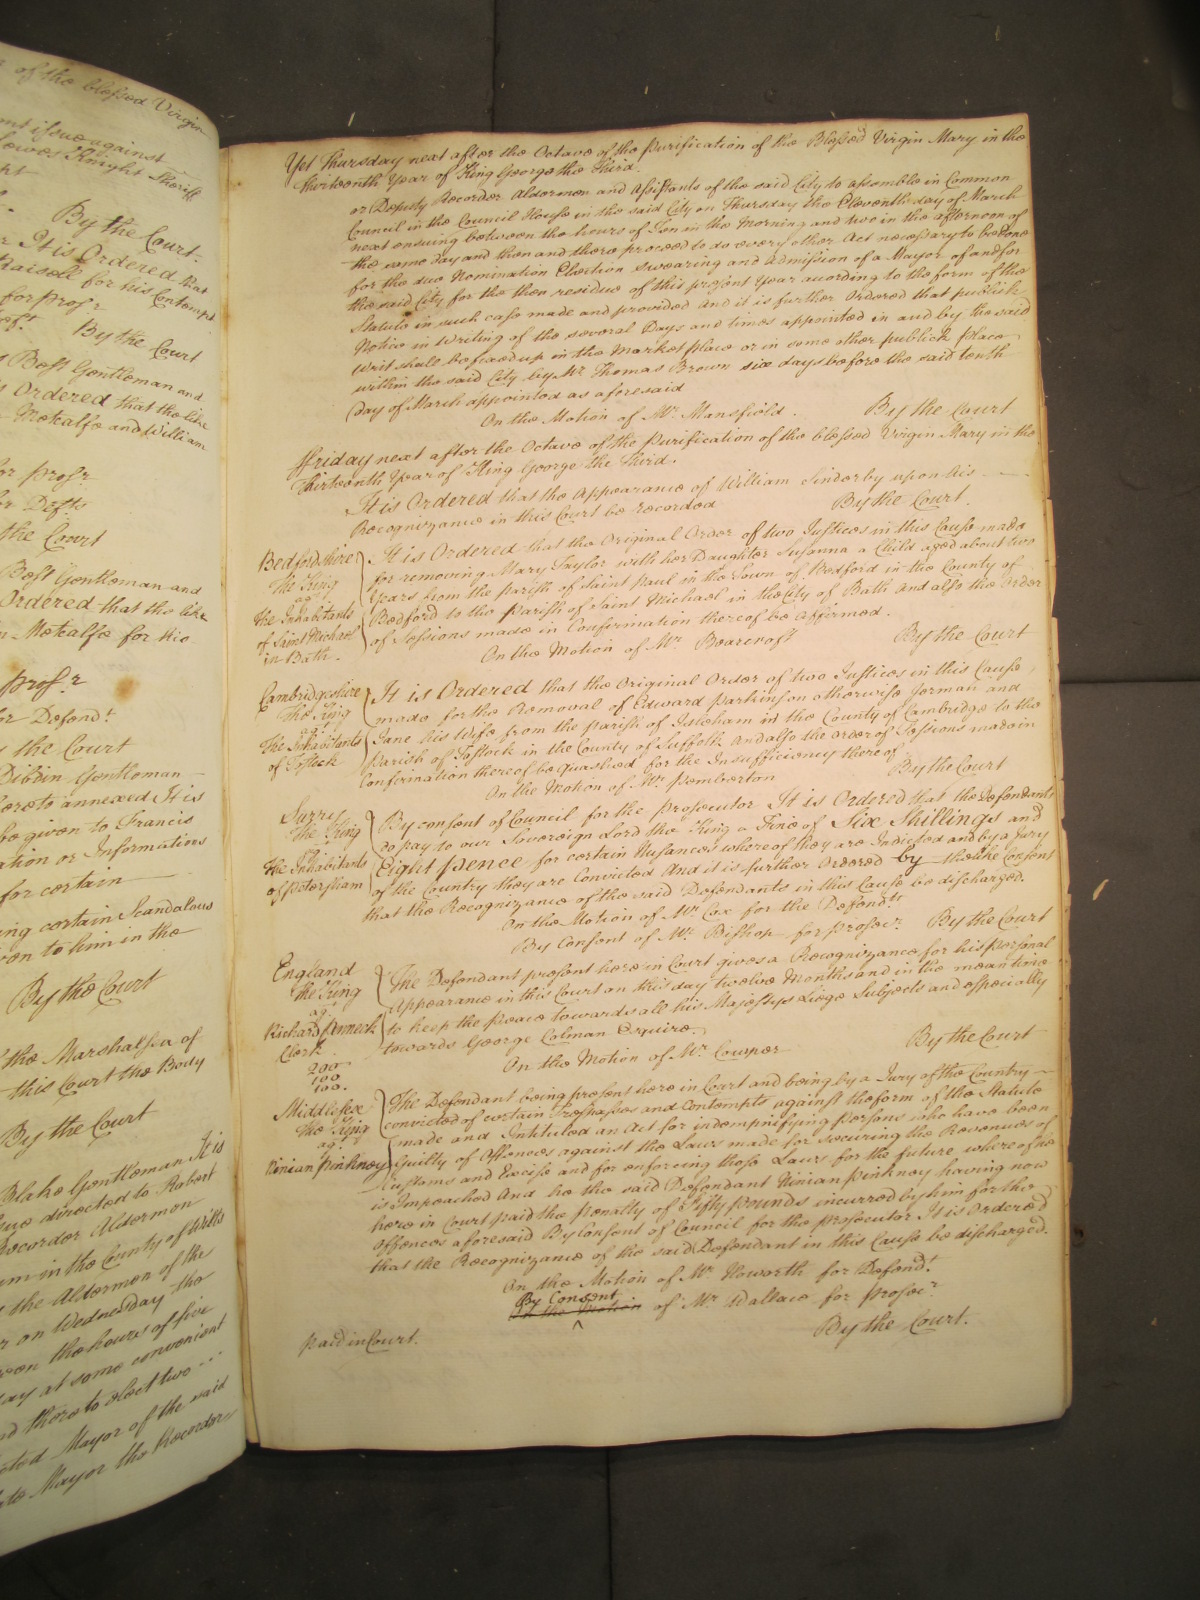 of the blessed Virgin
issue against
Lewes Knight Sheriff
By the Court.
It is Ordered that
for his Contempt
for Prosr
By the Court
Best Gentleman and
Ordered that the like
Metcalfe and William
for Prosr
for Defts
the Court
Best Gentleman and
Ordered that the like
Metcalfe for his
Prosr
for Defendt
the Court
Dibdin Gentleman
hereto annexed It is
be given to Francis
ation or Informations
for certain
ing certain Scandalous
on to him in the
By the Court
the Marshalsea of
this Court the Body
By the Court
Blake Gentleman It is
directed to Robert
Recorder Aldermen
in the County of Wilts
the Aldermen of the
on Wednesday the
the hours of five
at some convenient
there to elect two
Mayor of the said
Mayor the Recorder
Yet Thursday next after the Octave of the Purification of the Blessed Virgin Mary in the
Thirteenth Year of King George the Third.
or Deputy Recorder Aldermen and Assistants of the said City to assemble in Common
Council in the Council House in the said City on Thursday the Eleventh day of March
next ensuing between the hours of Ten in the Morning and two in the afternoon of
the same day and then and there proceed to do every other Act necessary to be done
for the due Nomination Election Swearing and admission of a Mayor of and for
the said City for the then residue of this present Year according to the form of the
Statute in such case made and provided And it is further Ordered that publick
Notice in Writing of the several Days and times appointed in and by the said
Writ shall be fixed up in the Market place or in some other publick place
within the said City by Mr. Thomas Brown six days before the said tenth
day of March appointed as aforesaid
On the Motion of Mr. Mansfield. By the Court
Friday next after the Octave of the Purification of the blessed Virgin Mary in the
Thirteenth Year of King George the Third.
It is Ordered that the Appearance of William Senderby upon his
Recognizance in this Court be recorded By the Court.
Bedfordshire
The King
agt
The Inhabitants
of Saint Michael
in Bath.
It is Ordered that the Original Order of two Justices in this Cause made
for removing Mary Taylor with her Daughter Susanna a Child aged about two
Years from the parish of Saint Paul in the Town of Bedford in the County of
Bedford to the Parish of Saint Michael in the City of Bath And also the Order
of Sessions made in Confirmation thereof be affirmed.
On the Motion of Mr. Bearcroft By the Court
Cambridgeshire
The King
agt
The Inhabitants
of Tostock
It is Ordered that the Original Order of two Justices in this Cause
made for the Removal of Edward Parkinson otherwise Jerman and
Jane his Wife from the parish of Isleham in the County of Cambridge to the
parish of Tostock in the County of Suffolk And also the Order of Sessions made in
Confirmation thereof be quashed for the Insufficiency thereof
On the Motion of Mr. Pemberton By the Court
Surry
The King
agt
The Inhabitants
of Petersham
By consent of Council for the Prosecutor It is Ordered that the Defendants
do pay to our Sovereign Lord the King a Fine of Six Shillings and
Eight pence for certain Nusances whereof they are Indicted and by a Jury
of the Country they are Convicted And it is further Ordered by the like Consent
that the Recognizance of the said Defendants in this Cause be discharged.
On the Motion of Mr. Cox for the Defendts
By Consent of Mr. Bishop for Prosecr. By the Court
England
The King
agt
Richard Penneck
Clerk
200
100
100.
The Defendant present here in Court gives a Recognizance for his personal
Appearance in this Court on this day twelve Months and in the mean time
to keep the Peace towards all his Majestys Liege Subjects and especially
towards George Colman Esquire.
On the Motion of Mr. Cowper By the Court
Middlesex
The King
agt
Ninian Pinkney
The Defendant being present here in Court and being by a Jury of the Country
convicted of certain Trespasses and Contempts against the form of the Statute
made and Intituled an Act for indemnifying Persons who have been
Guilty of Offences against the Laws made for securing the Revenues of
Customs and Excise and for enforcing those Laws for the future whereof he
is Impeached And he the said Defendant Ninian Pinkney having now
here in Court paid the Penalty of Fifty Pounds incurred by him for the
offences aforesaid By Consent of Council for the Prosecutor It is Ordered
that the Recognizance of the said Defendant in this Cause be discharged.
On the Motion of Mr. Howorth for Defendt.
By Consent
On the Motion of Mr. Wallace for Prosecr.
paid in Court. By the Court.